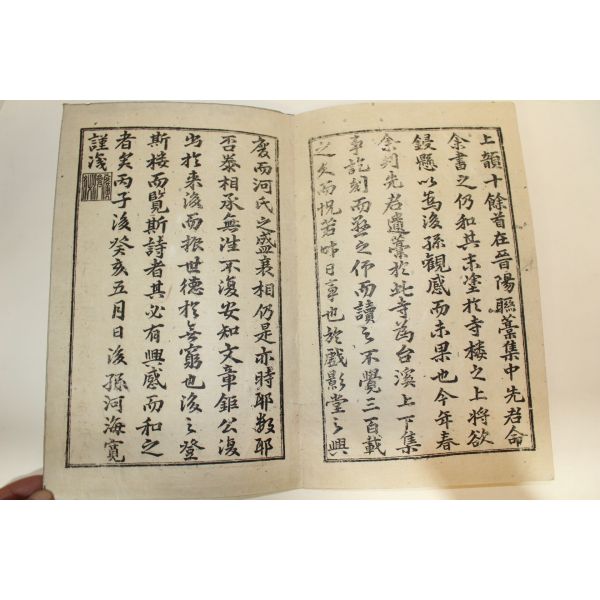 上韻十餘首在晉陽聯藁集中先君命
余書之仍和其末塗於寺楼之上將欲
鋟懸以爲後孫觀感而未果也今年春
余刻先君遺藁於此寺爲台溪上下集
事訖刻而丞之伻而讀之不覺三百載
之久而怳若昨日事也於戲影堂之興
廢而河氏之盛衰相仍是亦時耶數耶
否泰相承無往不復安知文章鉅公復
出於来後而振世德於無窮也後之登
斯楼而覧斯詩者其必有興感而和之
者矣丙子後癸亥五月日後孫河海寬
謹識